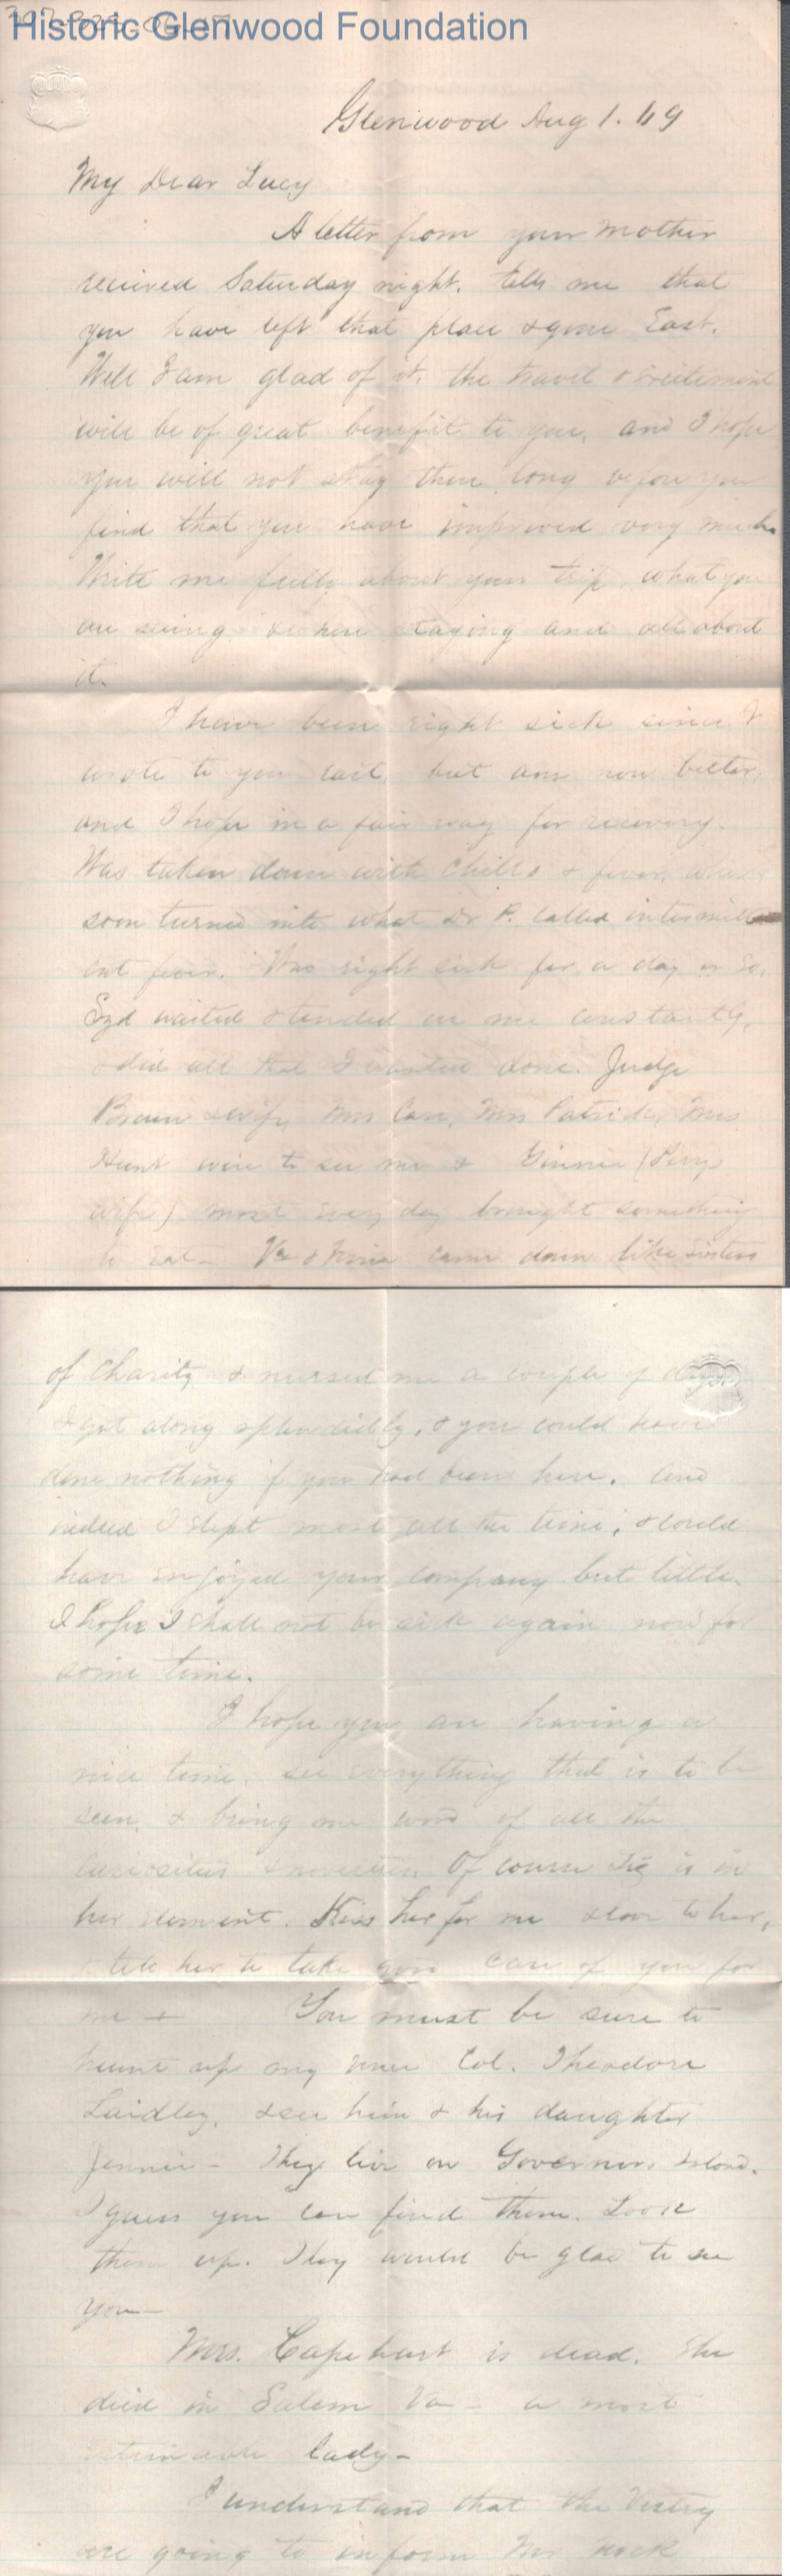 Historic Glenwood Foundation
Glenwood Aug 1. 69
My Dear Lucy
A letter from your mother
received Saturday night. tells me that
you have left that place & gone East.
Well I am glad of it. the travel & excitement
will be of great benefit to you, and I hope
you will not stay there long before you
find that you have improved very much
Write me fully about your trip, what you
are seeing where staying and all about
it.
I have been right sick since I
wrote to you last, but am now better,
and I hope in a fair way for recovery.
Was taken down with Chills & fever, which
soon turned into what Dr P. called intermitt
ent fever. Was right sick for a day or so.
Syd waited & tended on me constantly,
& did all that I wanted done. Judge
Brown & wife, Mrs Carr, Mrs Patrick, Mrs
Hunt were to see me & Ginnie (Perry's
wife) most every day brought something
to Eat - Va & Nina came down like Sisters
of Charity & nursed me a couple of days.
I got along splendidly, & you could have
done nothing if you had been here. And
indeed I slept most all the time, & could
have enjoyed your company but little.
I hope I shall not be sick again now for
some time.
I hope you are having a
nice time. see everything that is to be
seen, & bring me word of all the
Curiosities & novelties. Of course is in
her element. Kiss her for me & love to her,
tell her to take good care of you for
me - You must be sure to
hunt up my Col. Theodore
Laidley, & see him & his daughter
Jennie - They live on Governors Island.
I guess you can find them. Look
them up. They would be glad to see
you -
Mrs. Capehart is dead. She
died in Salem Va - a most
estimable lady -
I understand that the Vestry
are going to inform Mr